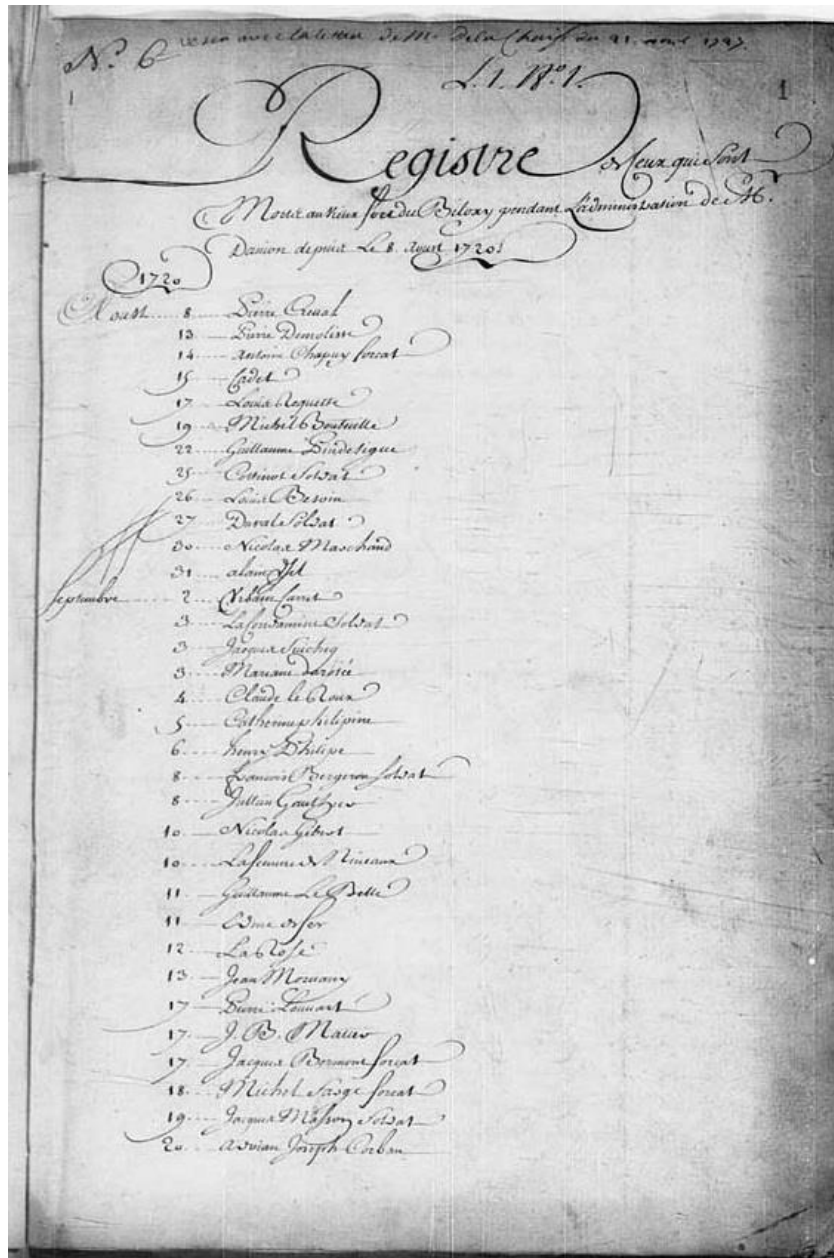 N.º 6 avec la lettre de M. de la Chaise du 21. avril 1727.
L. 1. Nº 1.
1
Registre de Ceux qui sont
Morts au Vieux fort du Biloxy pendant L'administration de M.
Danion depuis Le 8. Aoust 1720.
1720
Aoust 8 Pierre
13 Pierre Demolisse
14 Antoine Chapuy forcat
15 Cadet
17 Louis Requette
19 Michel Bouteille
22 Guillaume
25 Cottinot Soldat
26 Louis Besoin
27 Daval Soldat
30 Nicolas Marchand
31 alain
Septembre 2 Urbain
3 La fondamine Soldat
3 Jacques
3 Mariane
4 Claude le Roux
5 Catherine philipine
6 henry Philipe
8 francois Bergeron soldat
8 Jullien Gaultier
10 Nicolas Gibrot
10 La femme de
11 Guillaume Le Belle
11 Edme
12 La Rose
13 Jean
17 Pierre
17 J. B.
17 Jacques Bormont forcat
18 Michel Sarge forcat
19 Jacques Masson Soldat
20 adrian Joseph Corban